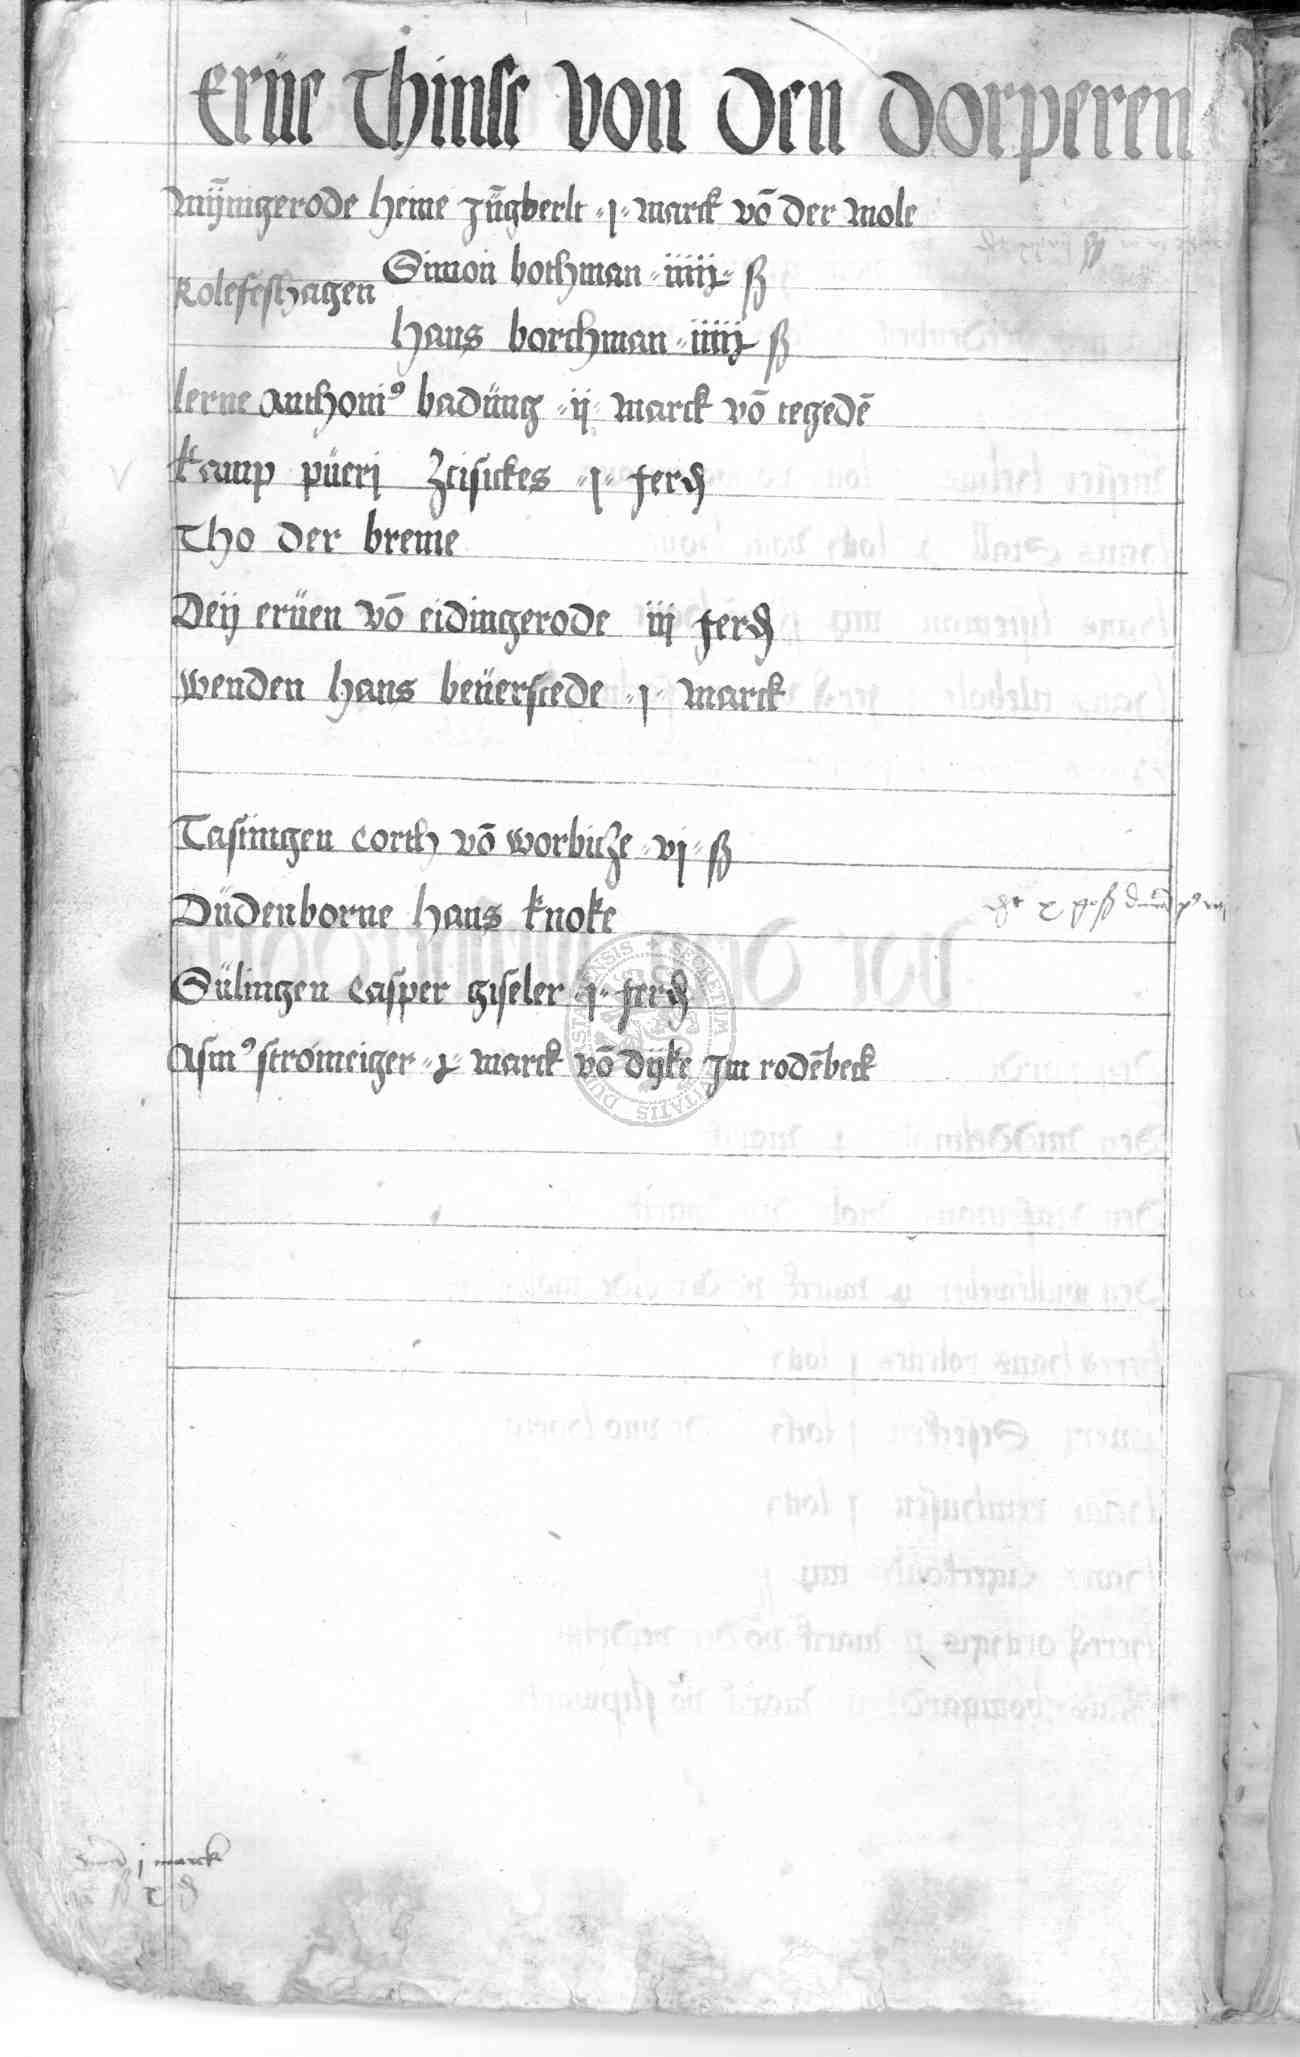 Erüe Thinse von den dorperen
Mÿ̄nigerode heine Jūgberlt ·j· marck vō der mole
Simon bothman ·iiiij· ß
kolefeshagen
hans borchman ·iiiij· ß
lerne Anthoniꝰ badüng ·ij· marck vō tegedē
kamp püeri Zcisickes ·j· ferd
Tho der breme
Deij erüen vō eidingerode iij ferd
wenden hans beüerstede ·j· marck
Tastüngen corth vō worbicze ·vj· ß
Düdenborne hans knoke
Sülingen casper giseler ·j· ferd
Asmꝰ stromeiger marck vō dijke Jm rodēbeck
j marck